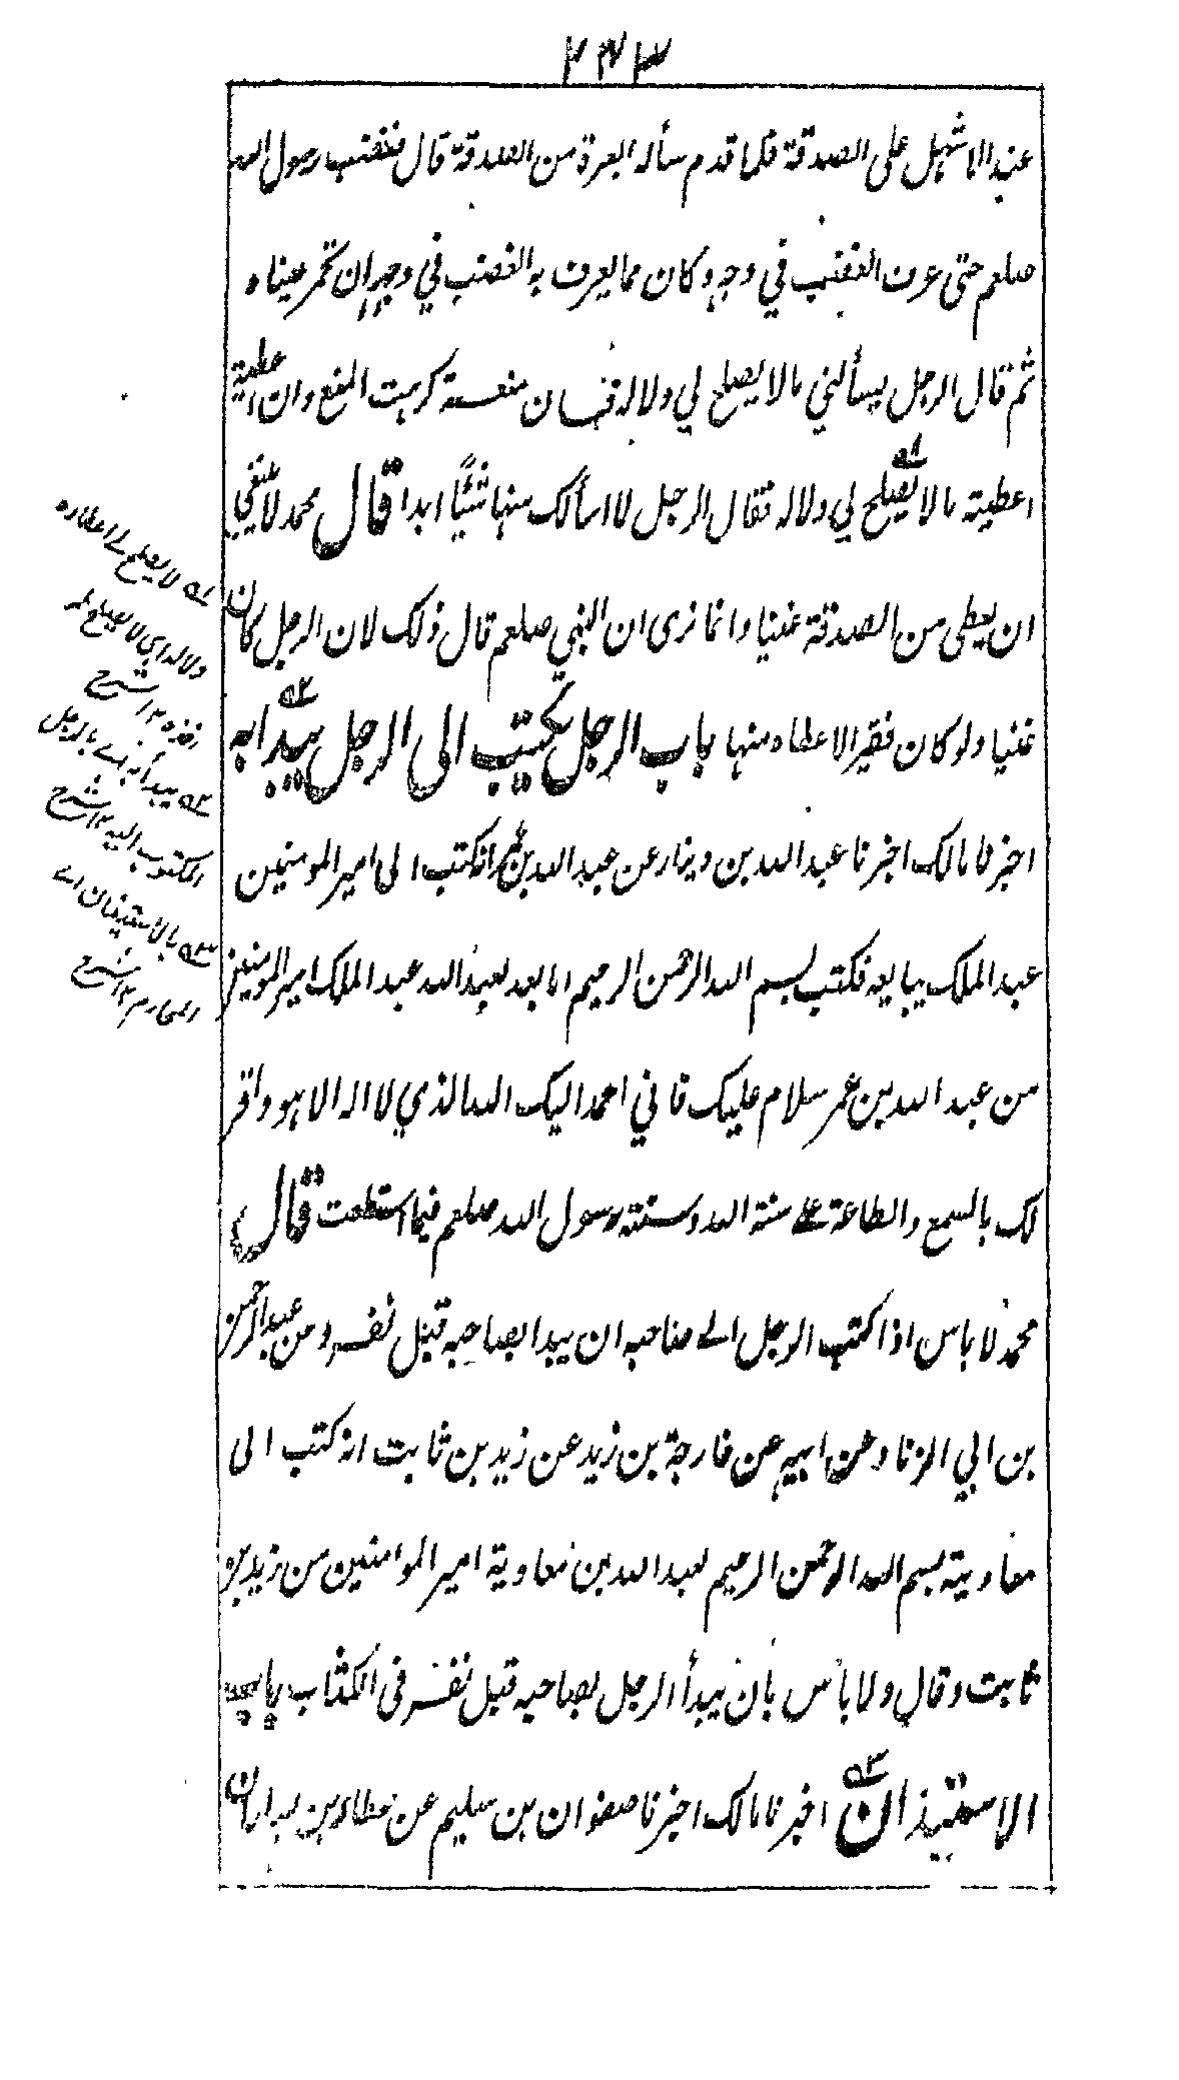 ٣٤٣
عبد الاشهل على الصدقة فلما قدم سأله ابعرة من الصدقة قال فغضب رسول الله
صلعم حتى عرف الغضب في وجهه وكان مما يعرف به الغضب في وجهه ان تحمر عيناه
ثم قال الرجل يسألني مالا يصلح لي ولا له فان منعته كرهت المنع وان اعطيته
اعطيته مالا يصلح لي ولا له فقال الرجل لا اسألك منها شيئًا ابدا قال محمد لا ينبغي
ان يعطى من الصدقة غنيا وانما نرى ان النبي صلعم قال ذلك لان الرجل كان
غنيا ولو كان فقيرا لاعطاه منها باب الرجل يكتب الى الرجل يبدأ به
اخبرنا مالك اخبرنا عبد الله بن دينار عن عبد الله بن عمر انه كتب الى امير المومنين
عبد الملك يبايعه فكتب بسم الله الرحمن الرحيم اما بعد لعبد الله عبد الملك امير المومنين
من عبد الله بن عمر سلام عليك فاني احمد اليك الله الذي لا اله الا هو واقر
لك بالسمع والطاعة على سنة الله وسنته رسول الله صلعم فيما استطعت قال
محمد لا باس اذا كتب الرجل الى صاحبه ان يبدا بصاحبه قبل نفسه ومن عبد الرحمن
بن ابي الزناد عن ابيه عن خارجة بن زيد عن زيد بن ثابت انه كتب الى
معاوية بسم الله الرحمن الرحيم لعبد الله بن معاوية امير المؤمنين من زيد بن
ثابت وقال ولا بأس بأن يبدأ الرجل بصاحبه قبل نفسه في الكتاب باب
الاستيذان اخبرنا مالك اخبرنا صفوان بن سليم عن عطاء بن يسار ان
١ لا يصلح لے اعطاءه
ولا له اى لا يصلح له
اخذه ١٢ شرح
٢ يبدأ به اے بالرجل
المكتوب اليه ١٢ شرح
٣ بالاستيذان اے
المحارم ١٢ شرح